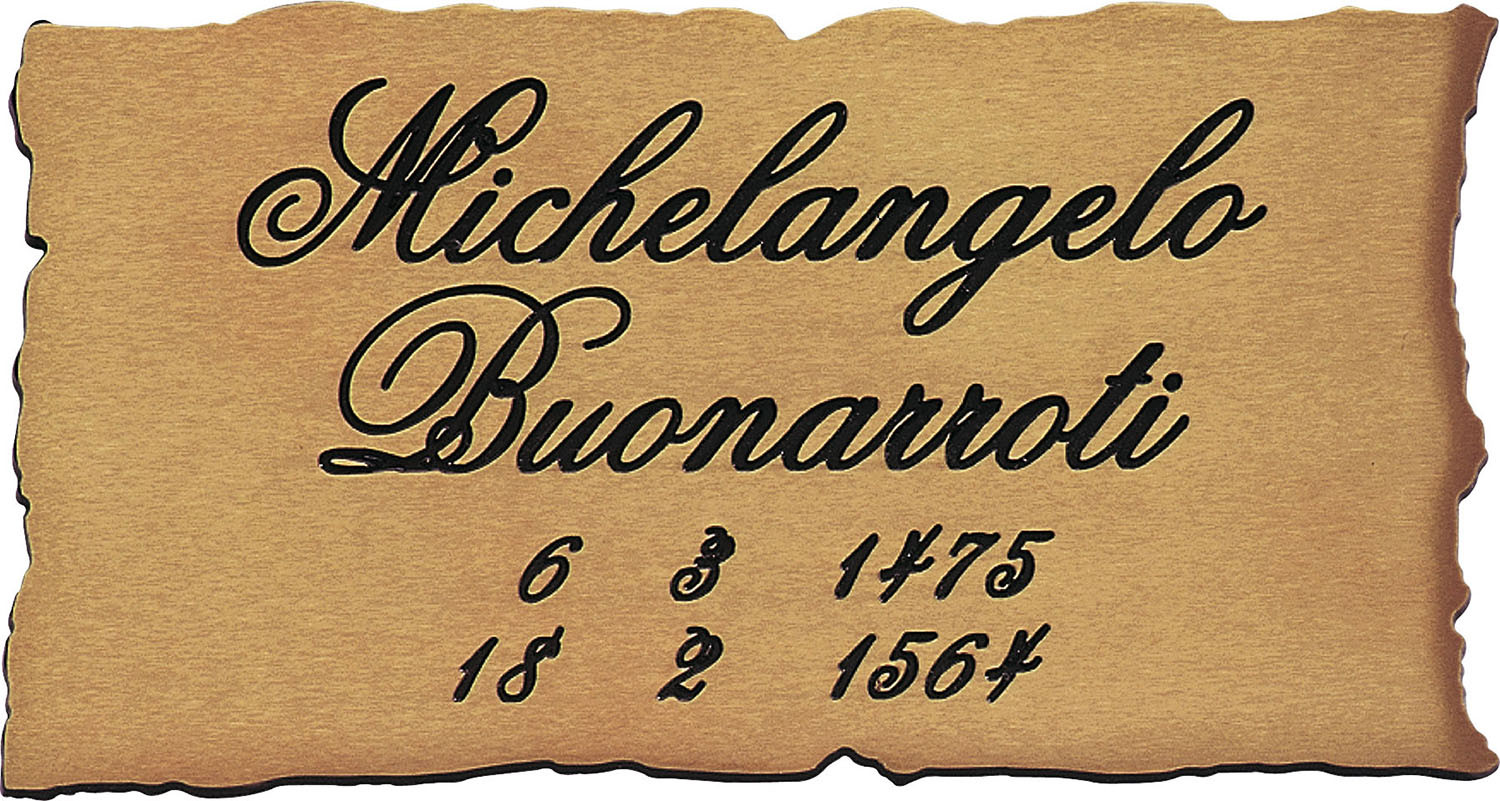 Michelangelo
Buonarroti
6 3 1475
18 2 1564